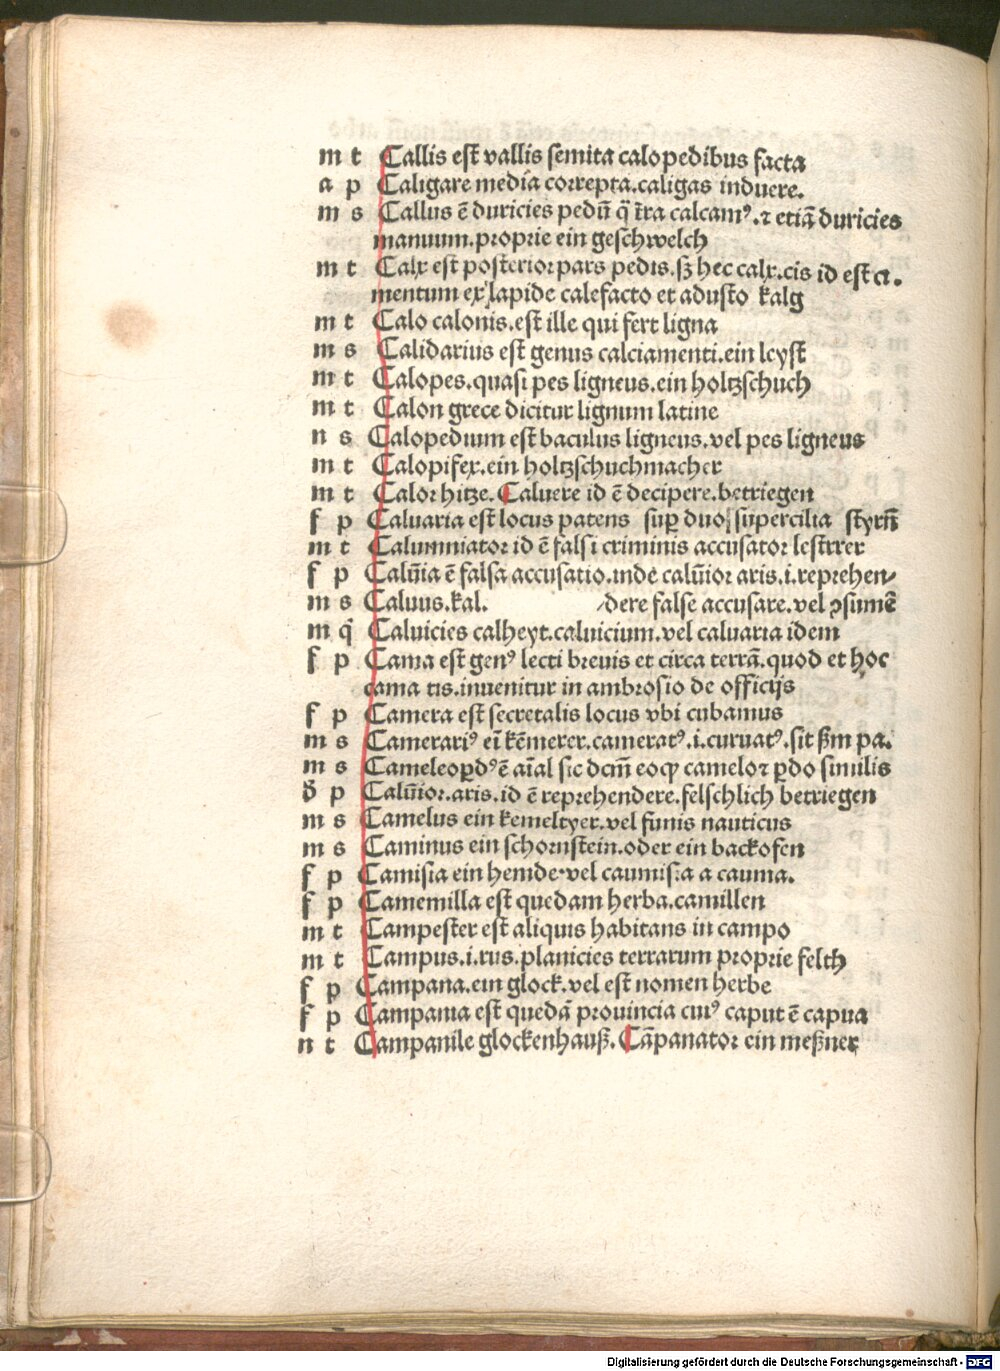 m t Callis est vallis semita calo pedibus facta
a p Caligare media correpta.caligas induere.
m s Callus ē duricies pedū q̄ t̄ra calcamꝰ.ꝛ etiā duricies
manuum.proprie ein geschwelch
m t Calx est posterior pars pedis.sꝫ hec calx.cis id est ci.
mentum ex lapide calefacto et adusto kalg
m t Calo calonis.est ille qui fert ligna
m s Calidarius est genus calciamenti.ein leyst
m t Calopes.quasi pes ligneus.ein holtzschuch
m t Calon grece dicitur lignum latine
n s Calopedium est baculus ligneus.vel pes ligneus
m t Calopifex.ein holtzschuchmacher
m t Calor hitze.Caluere id ē decipere.betriegen
f p Caluaria est locus patens suꝑ duo supercilia styrn̄
m t Calumniator id ē falsi criminis accusator lestrer
f p Calūia ē falsa accusatio.inde calūior aris.i.reprehen/
m s Caluus.kal. /dere false accusare.vel ꝯsumē
m q̄ Caluicies calheyt.caluicium.vel caluaria idem
f p Cama est genꝰ lecti breuis et circa terrā.quod et hoc
cama tis.inuenitur in ambrosio de officijs
f p Camera est secretalis locus vbi cubamus
m s Camerariꝰ ei kēmerer.cameratꝰ.i.curuatꝰ.sit ẜm pa.
m s Cameleoꝑdꝰ ē aīal sic dcm̄ eoꝙ camelo ꝛ ꝑdo similis
đ p Calūior.aris.id ē reprehendere.felschlich betriegen
m s Camelus ein kemeltyer.vel funis nauticus
m s Caminus ein schornstein.oder ein backofen
f p Camisia ein hemde.vel caumisia a cauma.
f p Camemilla est quedam herba.camillen
m t Campester est aliquis habitans in campo
m t Campus.i.rus.planicies terrarum proprie felth
f p Campana.ein glock.vel est nomen herbe
f p Campania est quedā prouincia cuiꝰ caput ē capua
n t Campanile glockenhauß.Cāpanator ein meßner
Digitalisierung gefördert durch die Deutsche Forschungsgemeinschaft - DFG